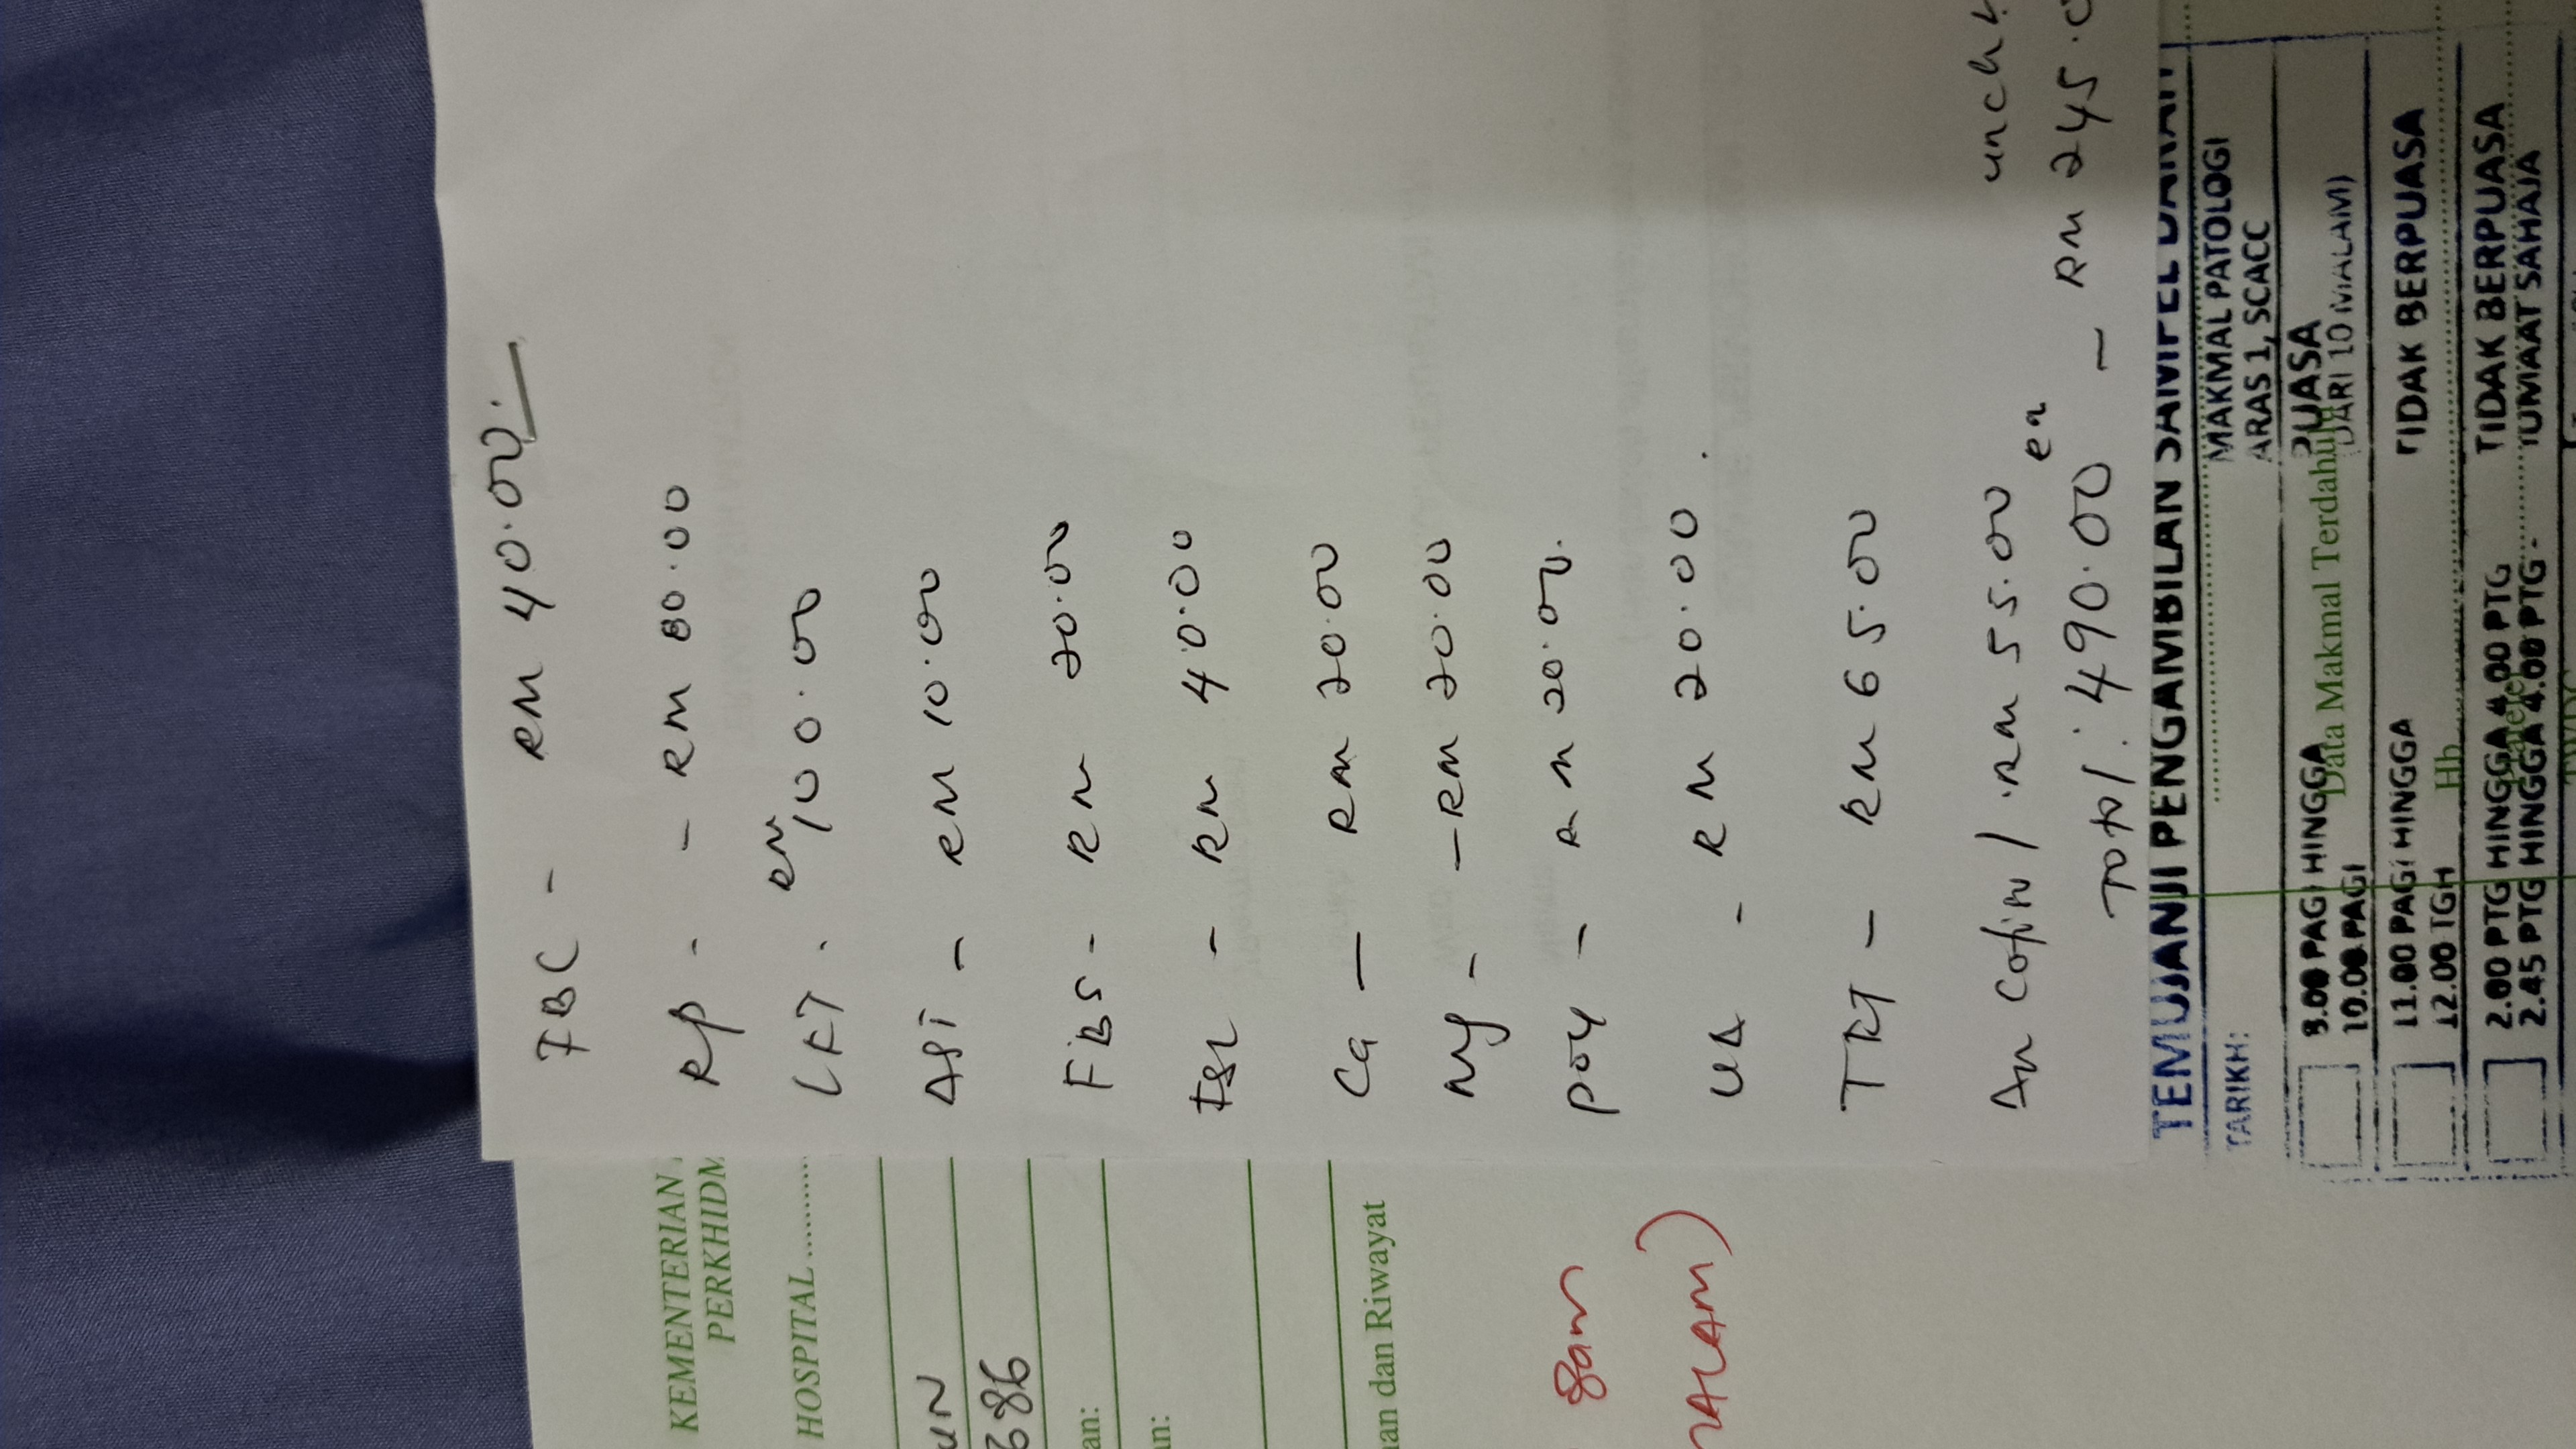 FBC - RM 40.00
RP - - RM 80.00
LFT - RM 100.00
AST - RM 10.00
FBS - RM 20.00
FSL - RM 40.00
Ca - RM 20.00
Mg - - RM 20.00
PO4 - RM 20.00
UA - RM 20.00
TFT - RM 65.00
RM 55.00 ea
Total : 490.00 - RM 245.0
KEMENTERIAN
PERKHIDM
HOSPITAL ..........
UN
686
an:
an:
aan dan Riwayat
8am
MALAM)
TEMUJANJI PENGAMBILAN SAMPEL DARAH
TARIKH: ....................
MAKMAL PATOLOGI
ARAS 1, SCACC
8.00 PAGI HINGGA
10.00 PAGI
PUASA
DARI 10 MALAM)
Data Makmal Terdahulu
11.00 PAGI HINGGA
12.00 TGH
TIDAK BERPUASA
Hb
2.00 PTG HINGGA 4.00 PTG
2.45 PTG HINGGA 4.00 PTG -
TIDAK BERPUASA
JUMAAT SAHAJA